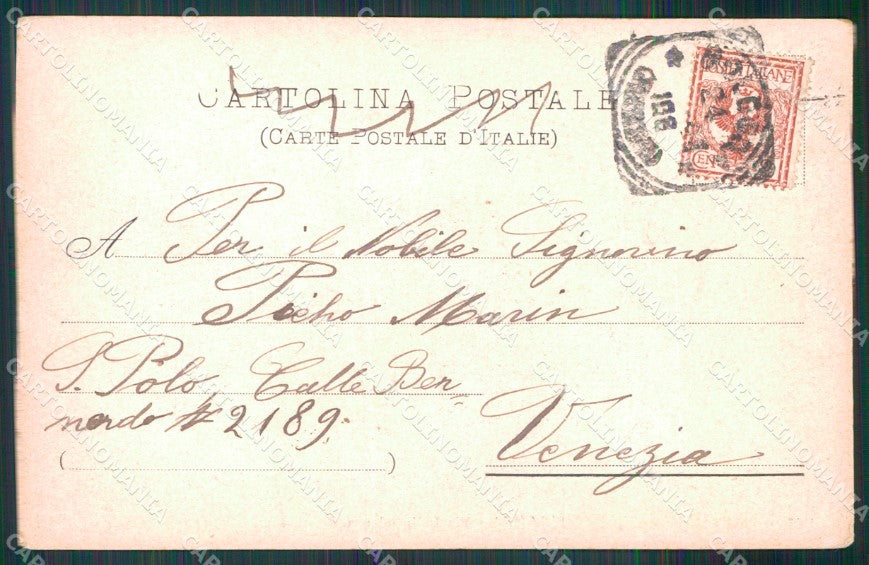 CARTOLINA POSTALE
(CARTE POSTALE D'ITALIE)
POSTE ITALIANE
A Per il Nobile Signorino
Marin
S. Polo, Calle Ber-
nardo N 2189.
Venezia
CARTOLINOMANIA